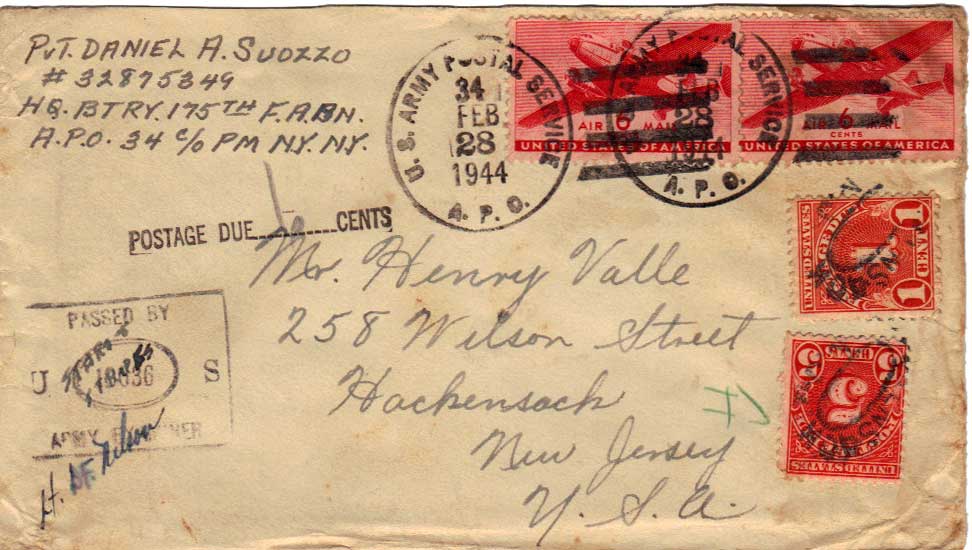 PVT. DANIEL A. SUOZZO
# 32875349
HQ. BTRY. 175TH F.A.BN.
A.P.O. 34 C/O PM NY. NY.
U.S. ARMY POSTAL SERVICE
34
FEB
28
1944
A. P. O.
ARMY POSTAL SERVICE
28
A. P. O.
AIR 6 MAIL
UNITED STATES OF AMERICA
AIR 6 MAIL
CENTS
UNITED STATES OF AMERICA
POSTAGE DUE CENTS
Mr. Henry Valle
258 Wilson Street
Hackensack
New Jersey
U.S.A.
PASSED BY
U S
ARMY EXAMINER
STARS &
STRIPES
Lt. Nelson
UNITED STATES
1 CENT 1
5 5
UNITED STATES